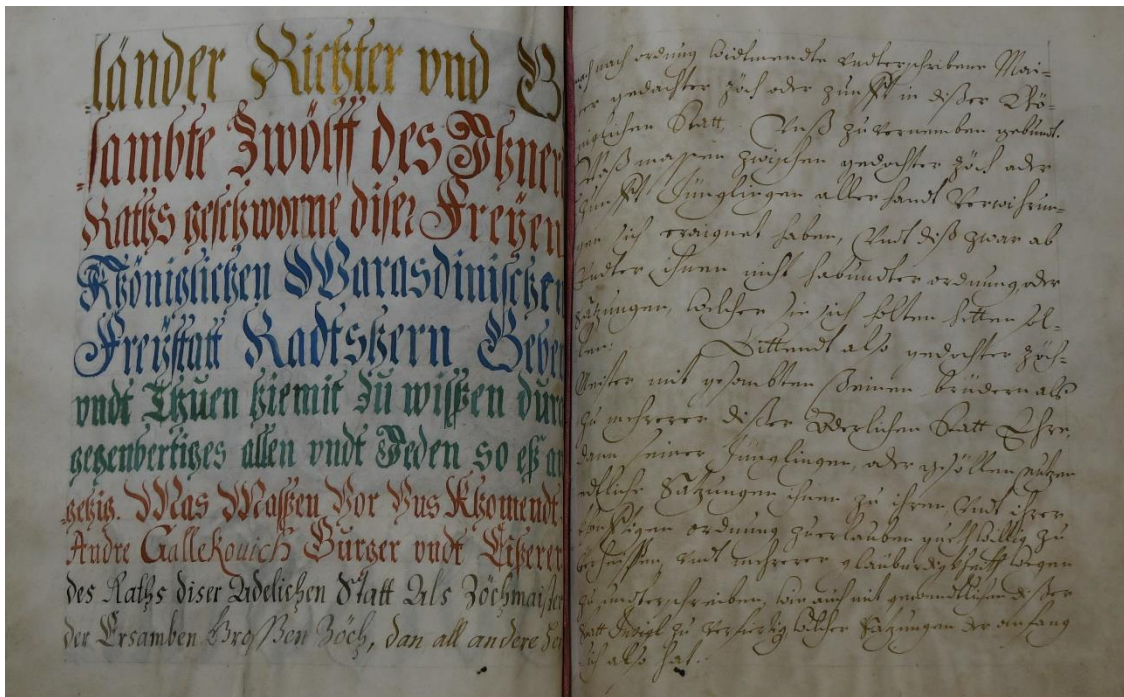 länder Richter vnd B
sambte Zwölff des Ihner
Raths geschworne diser Freyen
Königlichen Warasdinischen
Freystatt Radtshern Geben
vndt Thuen hiemit zu wissen durc
gegenvertiges allen vndt Jeden so eß an
gehig. Was Massen Vor Vns Khomendt
Andre Gallekouich Burger vndt
des Raths diser Adelichen Statt Als Zöchmaister
der Ersamben Grossen Zöch, dan all andere
nach ordnung vndterschribene Mai-
er gedachter Zöch oder Zunfft in diser Kö-
niglichen Statt, Vnß zu vernemben gebendt.
Waß massen zwischen gedachter Zöch oder
Zunfft Jünglingen aller handt Verwihrun-
gen sich eraignet haben, Vndt diß zwar ab
Vndter ihnen nicht habendter ordnung oder
Satzungen, welcher sie sich
len: Bittendt also gedachter Zöch-
Meister mit gesambten seinen brüdern als
zu mehrerer diser Statt Ehre,
dann seiner Jünglingen, oder gesöllen nutzen
etliche Satzungen ihnen zu ihrer Vndt ihrer
ordnung zuerlauben zu
Vndt mehrerer glaubwirdigkhait wegen
zu vndterschreiben, wie auch mit gewendtlichen diser
Statt Insigl zu solcher Satzungen der anfang
sich also hat.